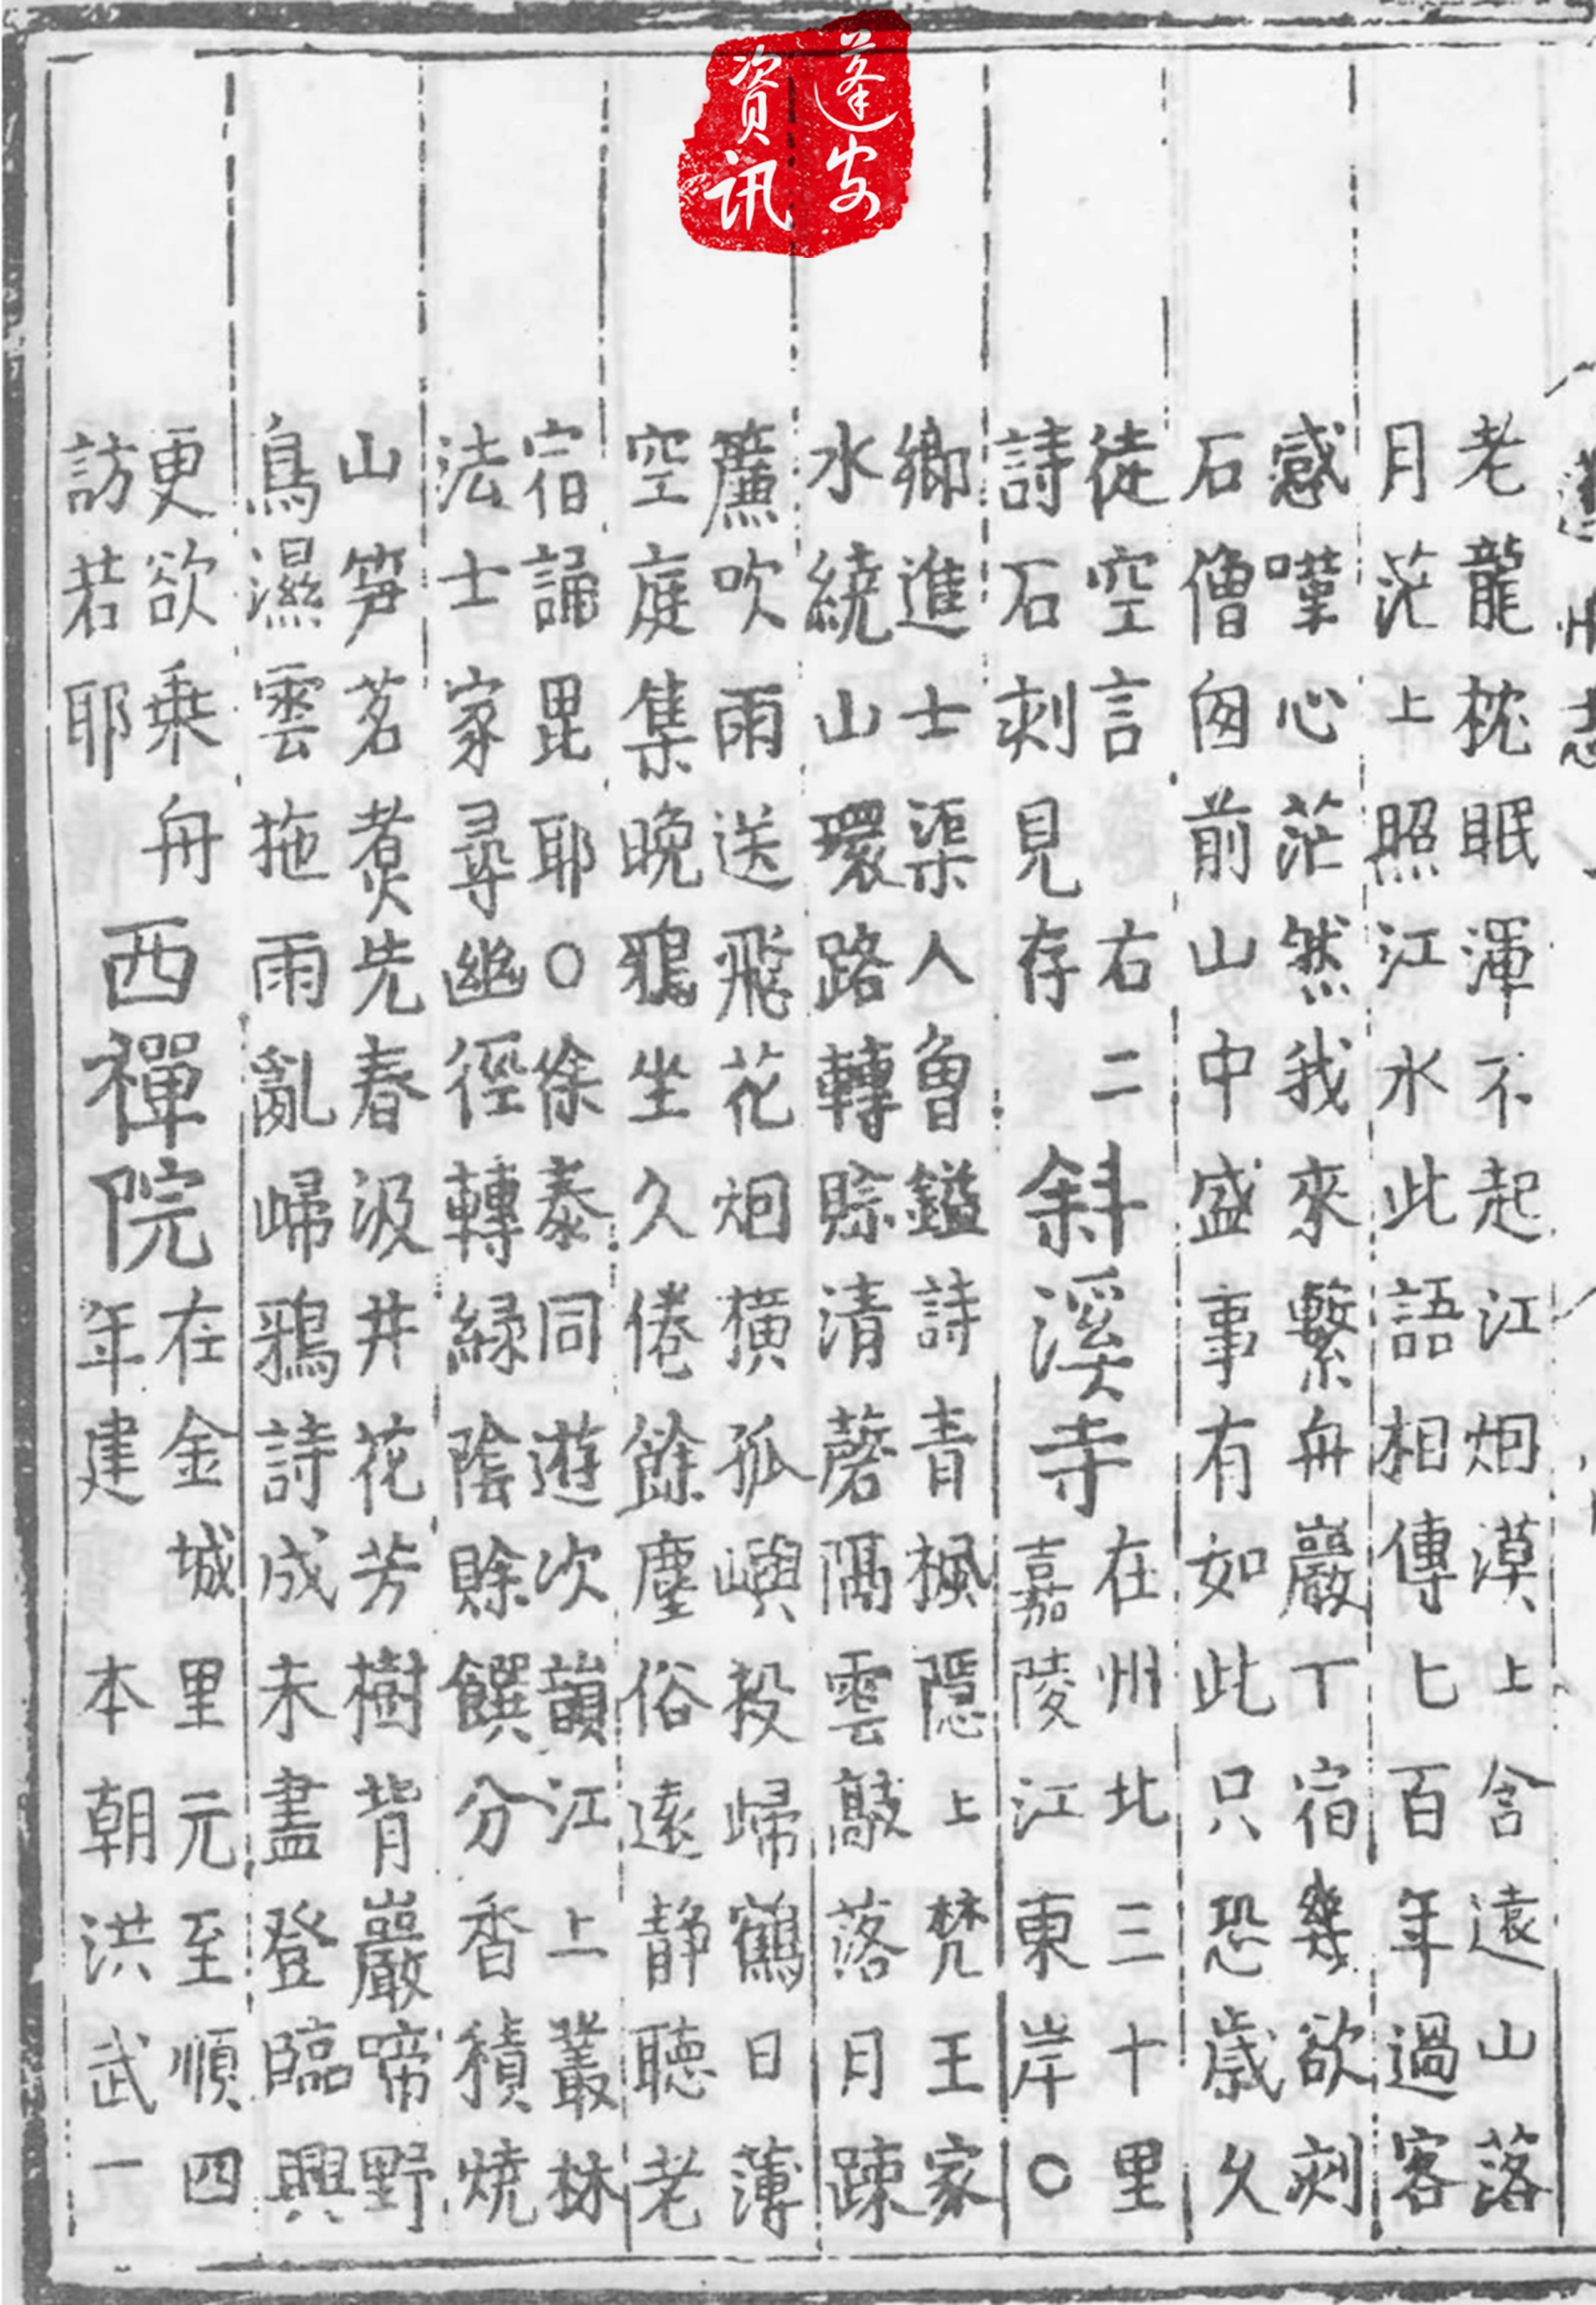 蓬安
資訊
老龍枕眠渾不起江烟漠上含遠山落
月茫上照江水此語相傳七百年過客
感嘆心茫然我來繫舟巖下宿幾欲刻
石僧囪前山中盛事有如此只恐歲久
徒空言 右二
詩石刻見存
斜溪寺
在州北三十里
嘉陵江東岸○
鄉進士渠人魯鎰詩青楓隱上梵王家
水繞山環路轉賒清磬隔雲敲落日踈
簾吹雨送飛花烟橫孤嶼投歸鶴日薄
空庭集晚鴉坐久倦餘塵俗遠靜聽老
宿誦毘耶○徐泰同遊次韻江上叢林
法士家尋幽徑轉緑陰賒饌分香積燒
山笋茗煮先春汲井花芳樹背巖啼野
鳥濕雲拖雨亂歸鴉詩成未盡登臨興
更欲乘舟
訪若耶
西禪院
在金城里元至順四
年建 本朝洪武一